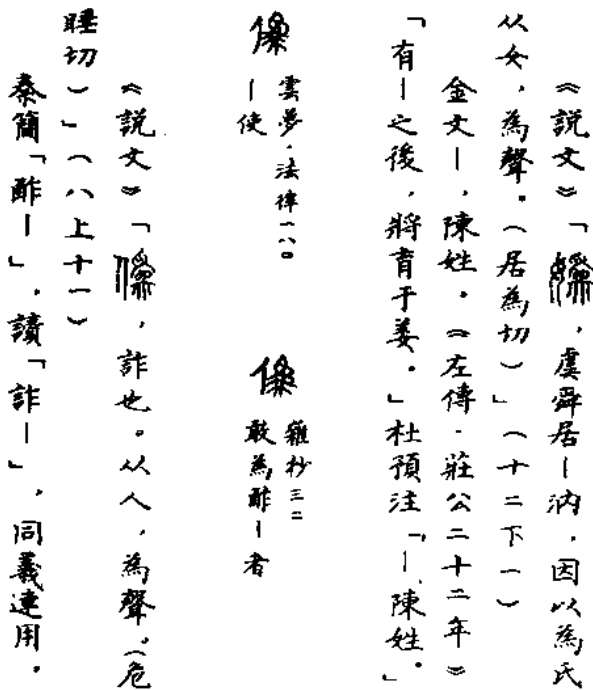 《説文》「嬀,虞舜居｜汭,因以為氏
从女,為聲。(居為切)」(十二下一)
金文｜,陳姓。《左傳·莊公二十二年》
「有｜之後,將育于姜。」杜預注「｜,陳姓。」
僞
雲夢·法律一八〇
｜使
僞
雜抄三二
敢為酢｜者
《説文》「僞,詐也。从人,為聲。(危
睡切)」(八上十一)
秦簡「酢｜」,讀「詐｜」,同義連用。